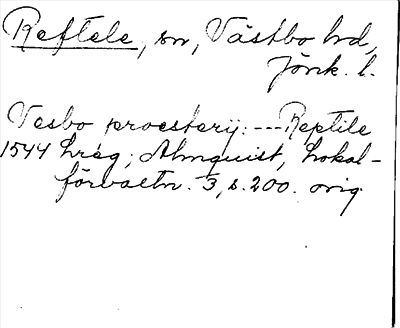 Reftele, sn, Västbo hd,
Jönk. l.
Vesbo proesterij: --- Reptile
1544 hräg; Almquist, Lokal-
förvaltn. 3, s. 200. orig.